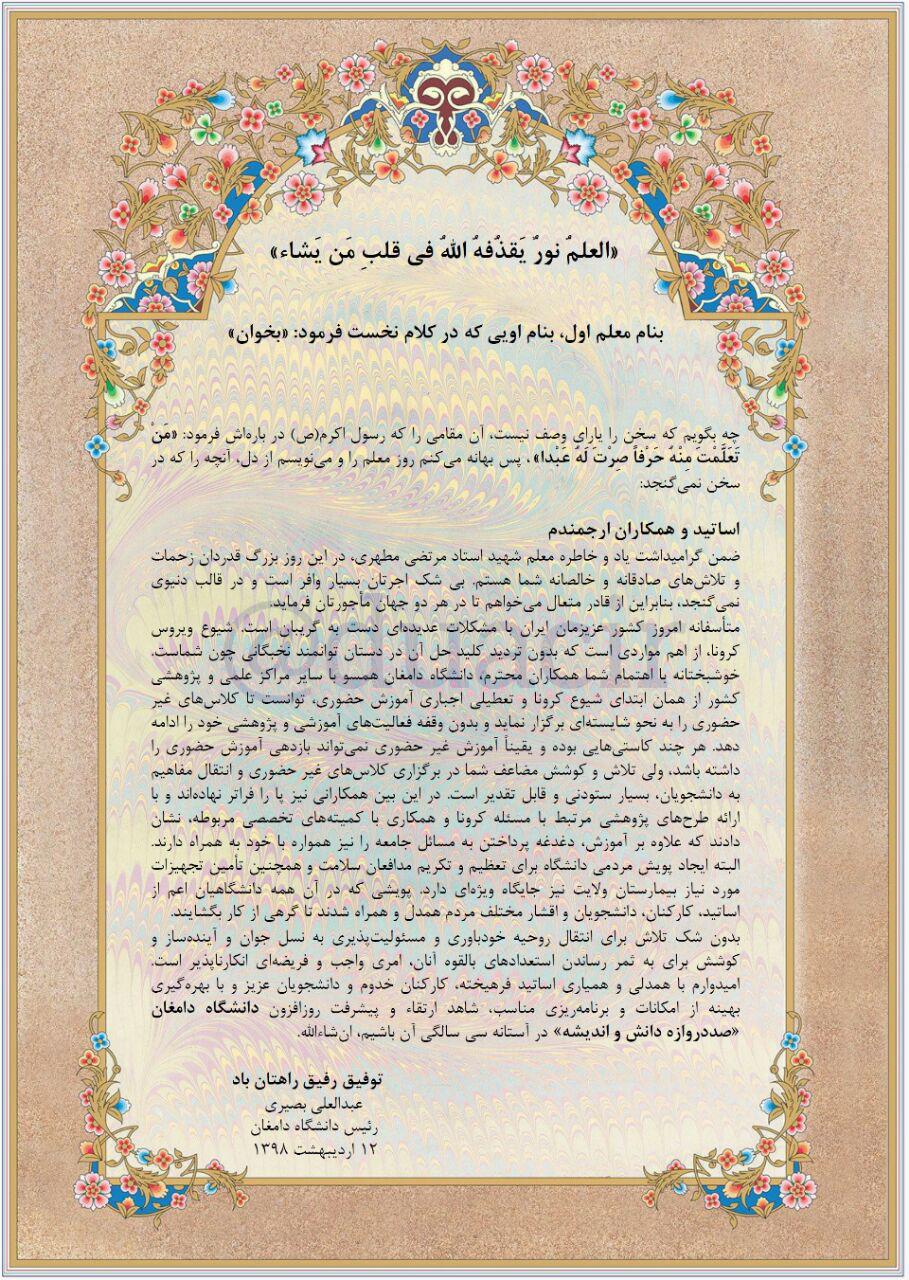 «العلمُ نورٌ یَقذُفهُ اللهُ فی قلبِ مَن یَشاء»
بنام معلم اول، بنام اویی که در کلام نخست فرمود: «بخوان»
چه بگویم که سخن را یارای وصف نیست، آن مقامی را که رسول اکرم(ص) در باره‌اش فرمود: «مَنْ
تَعَلَّمْتَ مِنْهُ حَرْفاً صِرْتَ لَهُ عَبْدا»، پس بهانه می‌کنم روز معلم را و می‌نویسم از دل، آنچه را که در
سخن نمی‌گنجد:
اساتید و همکاران ارجمندم
ضمن گرامیداشت یاد و خاطره معلم شهید استاد مرتضی مطهری، در این روز بزرگ قدردان زحمات
و تلاش‌های صادقانه و خالصانه شما هستم. بی شک اجرتان بسیار وافر است و در قالب دنیوی
نمی‌گنجد، بنابراین از قادر متعال می‌خواهم تا در هر دو جهان مأجورتان فرماید.
متأسفانه امروز کشور عزیزمان ایران با مشکلات عدیده‌ای دست به گریبان است. شیوع ویروس
کرونا، از اهم مواردی است که بدون تردید کلید حل آن در دستان توانمند نخبگانی چون شماست.
خوشبختانه با اهتمام شما همکاران محترم، دانشگاه دامغان همسو با سایر مراکز علمی و پژوهشی
کشور از همان ابتدای شیوع کرونا و تعطیلی اجباری آموزش حضوری، توانست تا کلاس‌های غیر
حضوری را به نحو شایسته‌ای برگزار نماید و بدون وقفه فعالیت‌های آموزشی و پژوهشی خود را ادامه
دهد. هر چند کاستی‌هایی بوده و یقیناً آموزش غیر حضوری نمی‌تواند بازدهی آموزش حضوری را
داشته باشد، ولی تلاش و کوشش مضاعف شما در برگزاری کلاس‌های غیر حضوری و انتقال مفاهیم
به دانشجویان، بسیار ستودنی و قابل تقدیر است. در این بین همکارانی نیز پا را فراتر نهاده‌اند و با
ارائه طرح‌های پژوهشی مرتبط با مسئله کرونا و همکاری با کمیته‌های تخصصی مربوطه، نشان
دادند که علاوه بر آموزش، دغدغه پرداختن به مسائل جامعه را نیز همواره با خود به همراه دارند.
البته ایجاد پویش مردمی دانشگاه برای تعظیم و تکریم مدافعان سلامت و همچنین تأمین تجهیزات
مورد نیاز بیمارستان ولایت نیز جایگاه ویژه‌ای دارد. پویشی که در آن همه دانشگاهیان اعم از
اساتید، کارکنان، دانشجویان و اقشار مختلف مردم همدل و همراه شدند تا گرهی از کار بگشایند.
بدون شک تلاش برای انتقال روحیه خودباوری و مسئولیت‌پذیری به نسل جوان و آینده‌ساز و
کوشش برای به ثمر رساندن استعدادهای بالقوه آنان، امری واجب و فریضه‌ای انکارناپذیر است.
امیدوارم با همدلی و همیاری اساتید فرهیخته، کارکنان خدوم و دانشجویان عزیز و با بهره‌گیری
بهینه از امکانات و برنامه‌ریزی مناسب، شاهد ارتقاء و پیشرفت روزافزون دانشگاه دامغان
«صددروازه دانش و اندیشه» در آستانه سی سالگی آن باشیم، ان‌شاءالله.
توفیق رفیق راهتان باد
عبدالعلی بصیری
رئیس دانشگاه دامغان
۱۲ اردیبهشت ۱۳۹۸